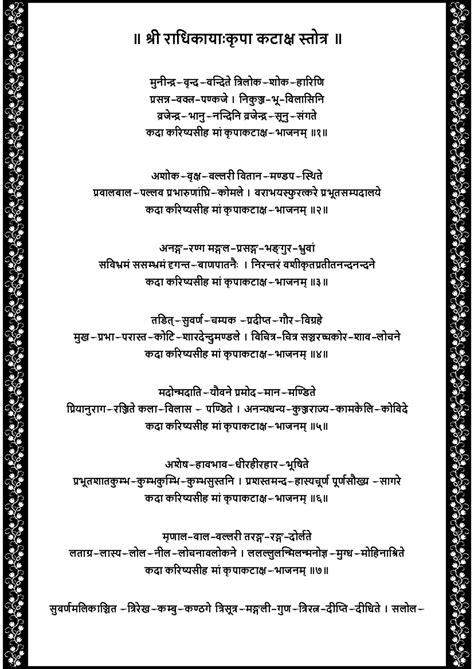 ॥ श्री राधिकायाःकृपा कटाक्ष स्तोत्र ॥
मुनीन्द्र–वृन्द–वन्दिते त्रिलोक–शोक–हारिणि
प्रसन्न-वक्त्र-पण्कजे । निकुञ्ज-भू-विलासिनि
व्रजेन्द्र–भानु–नन्दिनि व्रजेन्द्र–सूनु–संगते
कदा करिष्यसीह मां कृपाकटाक्ष–भाजनम् ॥१॥
अशोक–वृक्ष–वल्लरी वितान–मण्डप–स्थिते
प्रवालबाल–पल्लव प्रभारुणांघ्रि–कोमले । वराभयस्फुरत्करे प्रभूतसम्पदालये
कदा करिष्यसीह मां कृपाकटाक्ष–भाजनम् ॥२॥
अनङ्ग–रण्ग मङ्गल–प्रसङ्ग–भङ्गुर–भ्रुवां
सविभ्रमं ससम्भ्रमं दृगन्त–बाणपातनैः । निरन्तरं वशीकृतप्रतीतनन्दनन्दने
कदा करिष्यसीह मां कृपाकटाक्ष–भाजनम् ॥३॥
तडित्–सुवर्ण–चम्पक –प्रदीप्त–गौर–विग्रहे
मुख–प्रभा–परास्त–कोटि–शारदेन्दुमण्डले । विचित्र–चित्र सञ्चरच्चकोर–शाव–लोचने
कदा करिष्यसीह मां कृपाकटाक्ष–भाजनम् ॥४॥
मदोन्मदाति–यौवने प्रमोद–मान–मण्डिते
प्रियानुराग–रञ्जिते कला–विलास – पण्डिते । अनन्यधन्य–कुञ्जराज्य–कामकेलि–कोविदे
कदा करिष्यसीह मां कृपाकटाक्ष–भाजनम् ॥५॥
अशेष–हावभाव–धीरहीरहार–भूषिते
प्रभूतशातकुम्भ–कुम्भकुम्भि–कुम्भसुस्तनि । प्रशस्तमन्द–हास्यचूर्ण पूर्णसौख्य –सागरे
कदा करिष्यसीह मां कृपाकटाक्ष–भाजनम् ॥६॥
मृणाल–वाल–वल्लरी तरङ्ग–रङ्ग–दोर्लते
लताग्र–लास्य–लोल–नील–लोचनावलोकने । ललल्लुलन्मिलन्मनोज्ञ–मुग्ध–मोहिनाश्रिते
कदा करिष्यसीह मां कृपाकटाक्ष–भाजनम् ॥७॥
सुवर्णमलिकाञ्चित –त्रिरेख–कम्बु–कण्ठगे त्रिसूत्र–मङ्गली–गुण–त्रिरत्न–दीप्ति–दीधिते । सलोल–